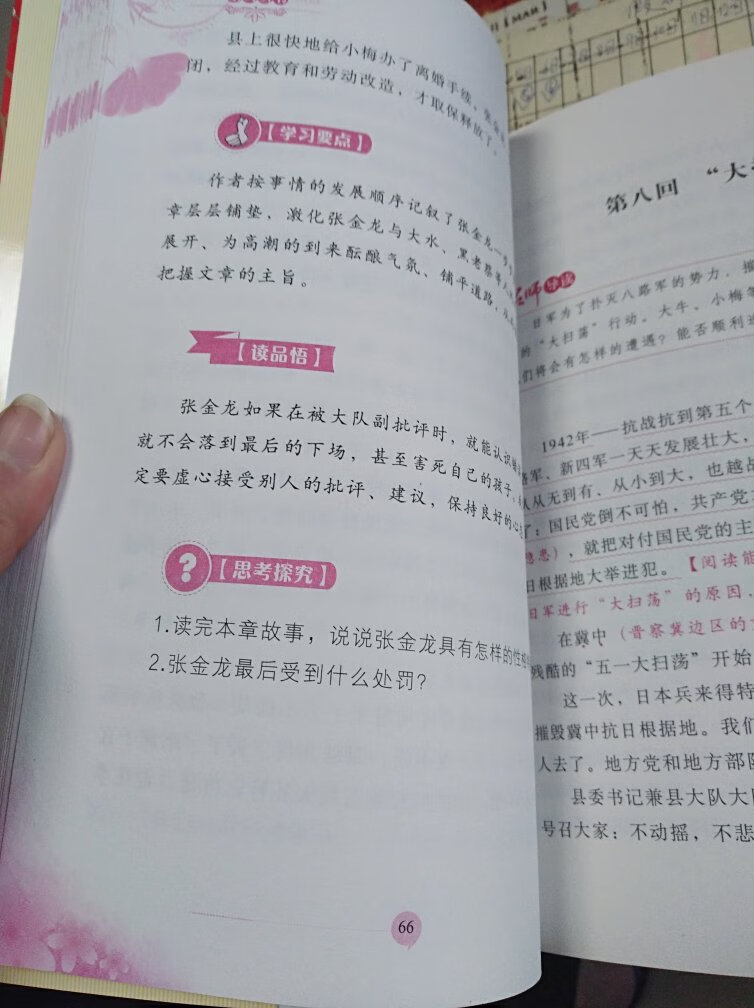 县上很快地给小梅办了离婚手续，
闭，经过教育和劳动改造，才取保释放了。
【学习要点】
作者按事情的发展顺序记叙了张金龙一步
章层层铺垫，激化张金龙与大水、黑老蔡等人
展开、为高潮的到来酝酿气氛、铺平道路，
把握文章的主旨。
【读品悟】
张金龙如果在被大队副批评时，就能认识
就不会落到最后的下场，甚至害死自己的孩子。
定要虚心接受别人的批评、建议，保持良好的心
?
【思考探究】
1.读完本章故事，说说张金龙具有怎样的性
2.张金龙最后受到什么处罚？
66
第八回 “大
师导读
日军为了扑灭八路军的势力，
的“大扫荡”行动。大牛、小梅等
们将会有怎样的遭遇？能否顺利
1942年——抗战抗到第五个
路军、新四军一天天发展壮大，
从从无到有、从小到大，也越战
了；国民党倒不可怕，共产党
，就把对付国民党的主
日根据地大举进犯。【阅读能
日军进行“大扫荡”的原因，
在冀中（晋察冀边区的
残酷的“五一大扫荡”开始
这一次，日本兵来得特
摧毁冀中抗日根据地。我们
人去了。地方党和地方部队
县委书记兼县大队大
号召大家：不动摇，不悲